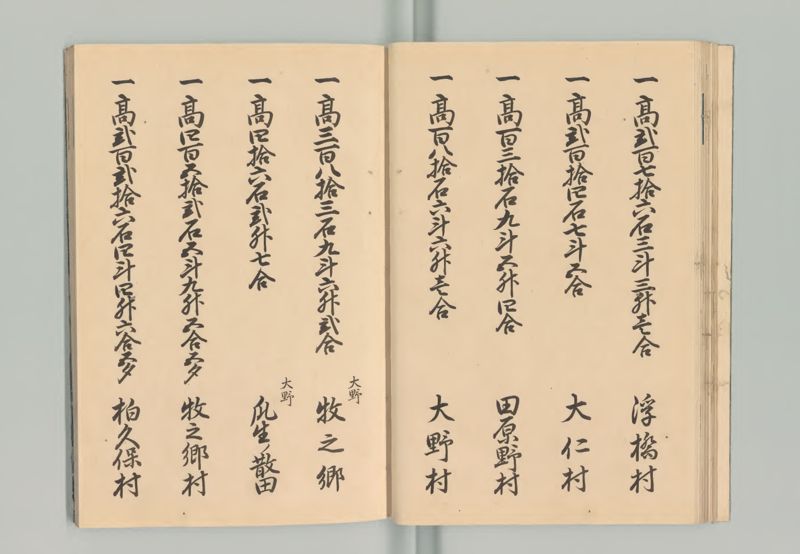 一 高弐百七拾六石三斗三升壱合 浮橋村
一 高弐百拾四石七斗五合 大仁村
一 高百三拾石九斗五升四合 田原野村
一 高百八拾石六斗六升壱合 大野村
一 高三百八拾三石九斗六升弐合 大野 牧之郷
一 高四拾六石弐升七合 大野 瓜生ノ散田
一 高四百五拾弐石五斗九升五合五夕 牧之郷村
一 高弐百弐拾六石四斗四升六合五夕 柏久保村